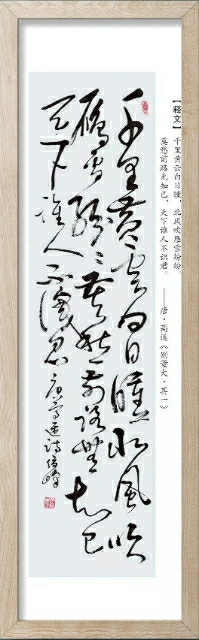 【释文】千里黄云白日曛，北风吹雁雪纷纷。
莫愁前路无知己，天下谁人不识君。 ——唐·高适《别董大·其一》
千里黄云白日曛北風吹
雁雪纷〻莫愁前路無知己
天下谁人不識君 唐高适诗